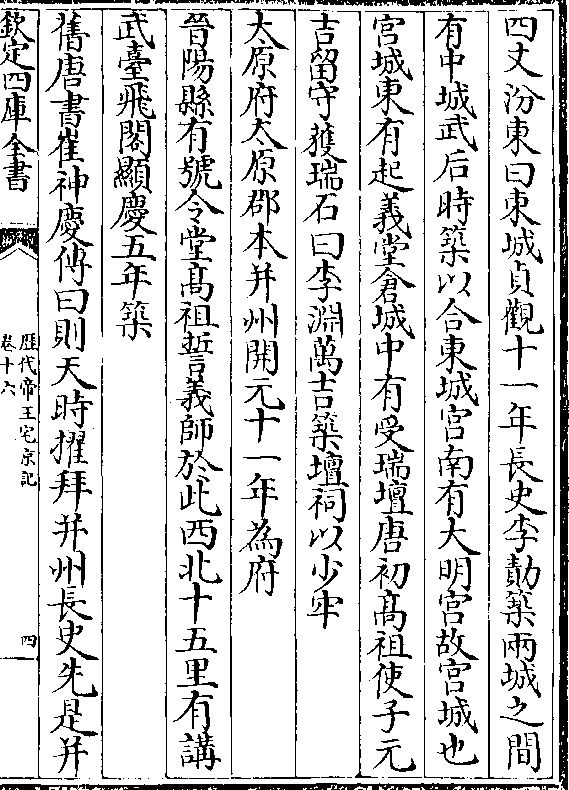 四丈汾東曰東城貞觀十一年長史李勣築兩城之間
有中城武后時築以合東城宫南有大明宫故宫城也
宫城東有起義堂倉城中有受瑞壇唐初髙祖使子元
吉留守獲瑞石曰李淵萬吉築壇祠以少牢
太原府太原郡本并州開元十一年為府
晉陽縣有號令堂髙祖誓義師於此西北十五里有講
武臺飛閣顯慶五年築
舊唐書崔神慶傳曰則天時擢拜并州長史先是并
欽定四庫全書
歴代帝王宅京記
卷十六
四